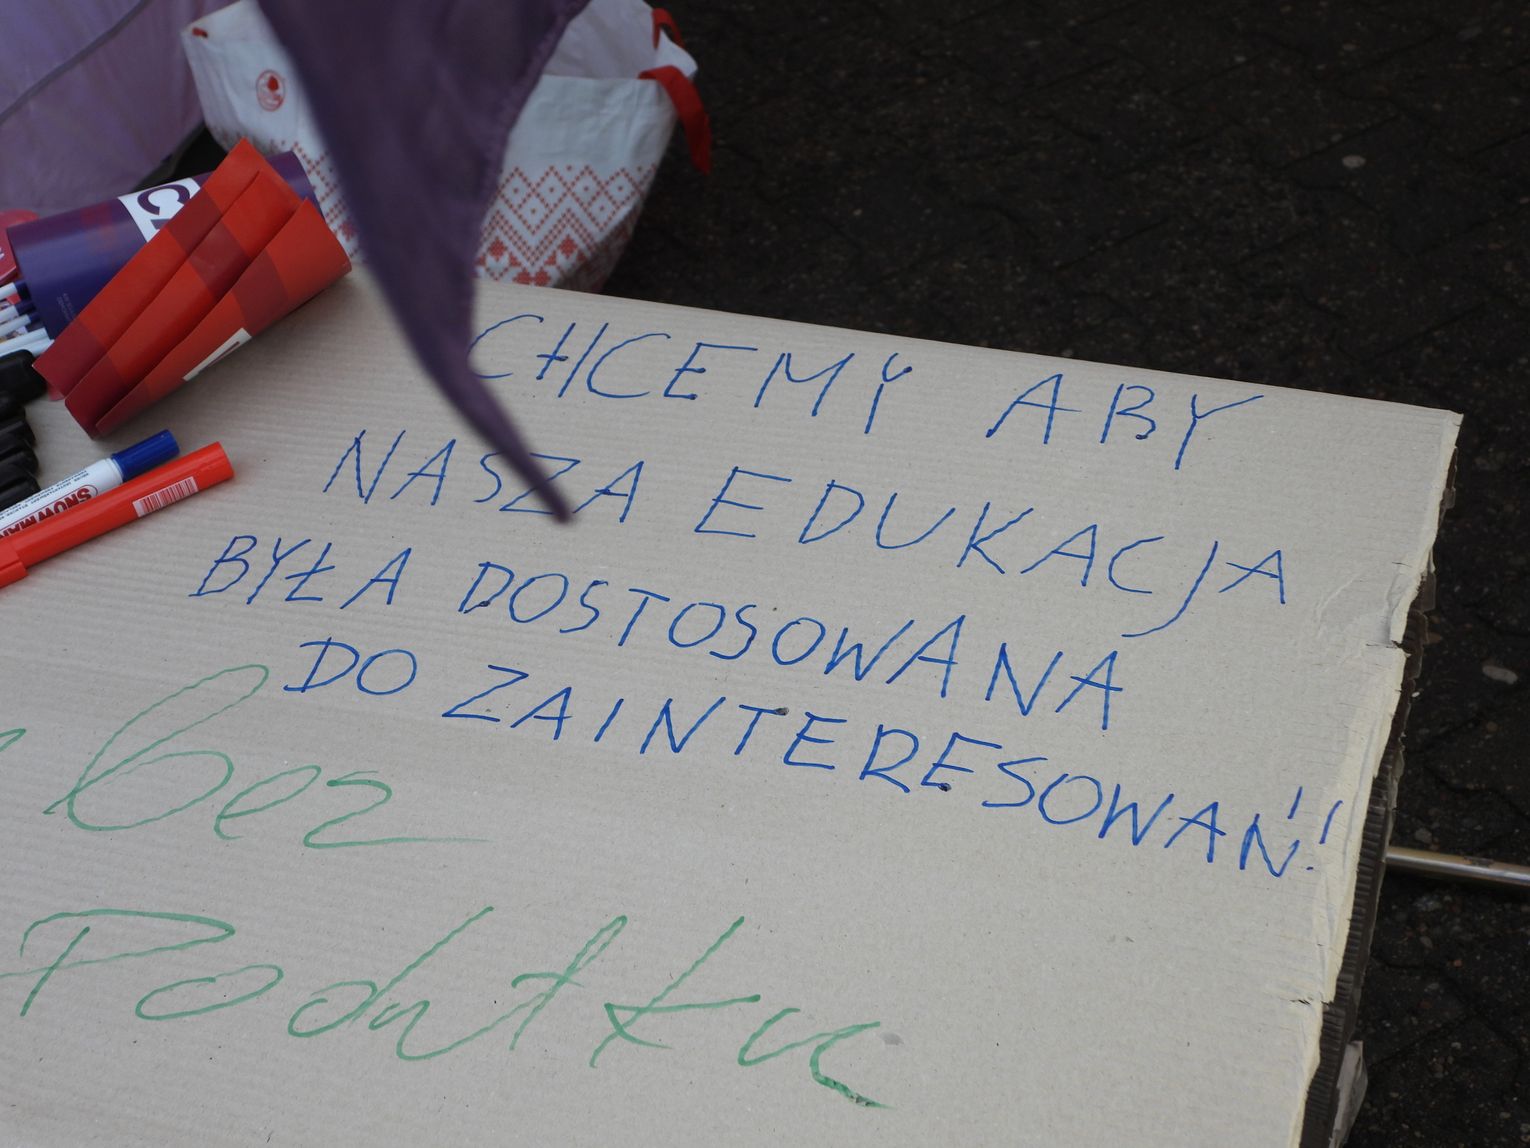 CHCEMY ABY
NASZA EDUKACJA
BYŁA DOSTOSOWANA
DO ZAINTERESOWAŃ!
bez
Podatku
SNOWMAN